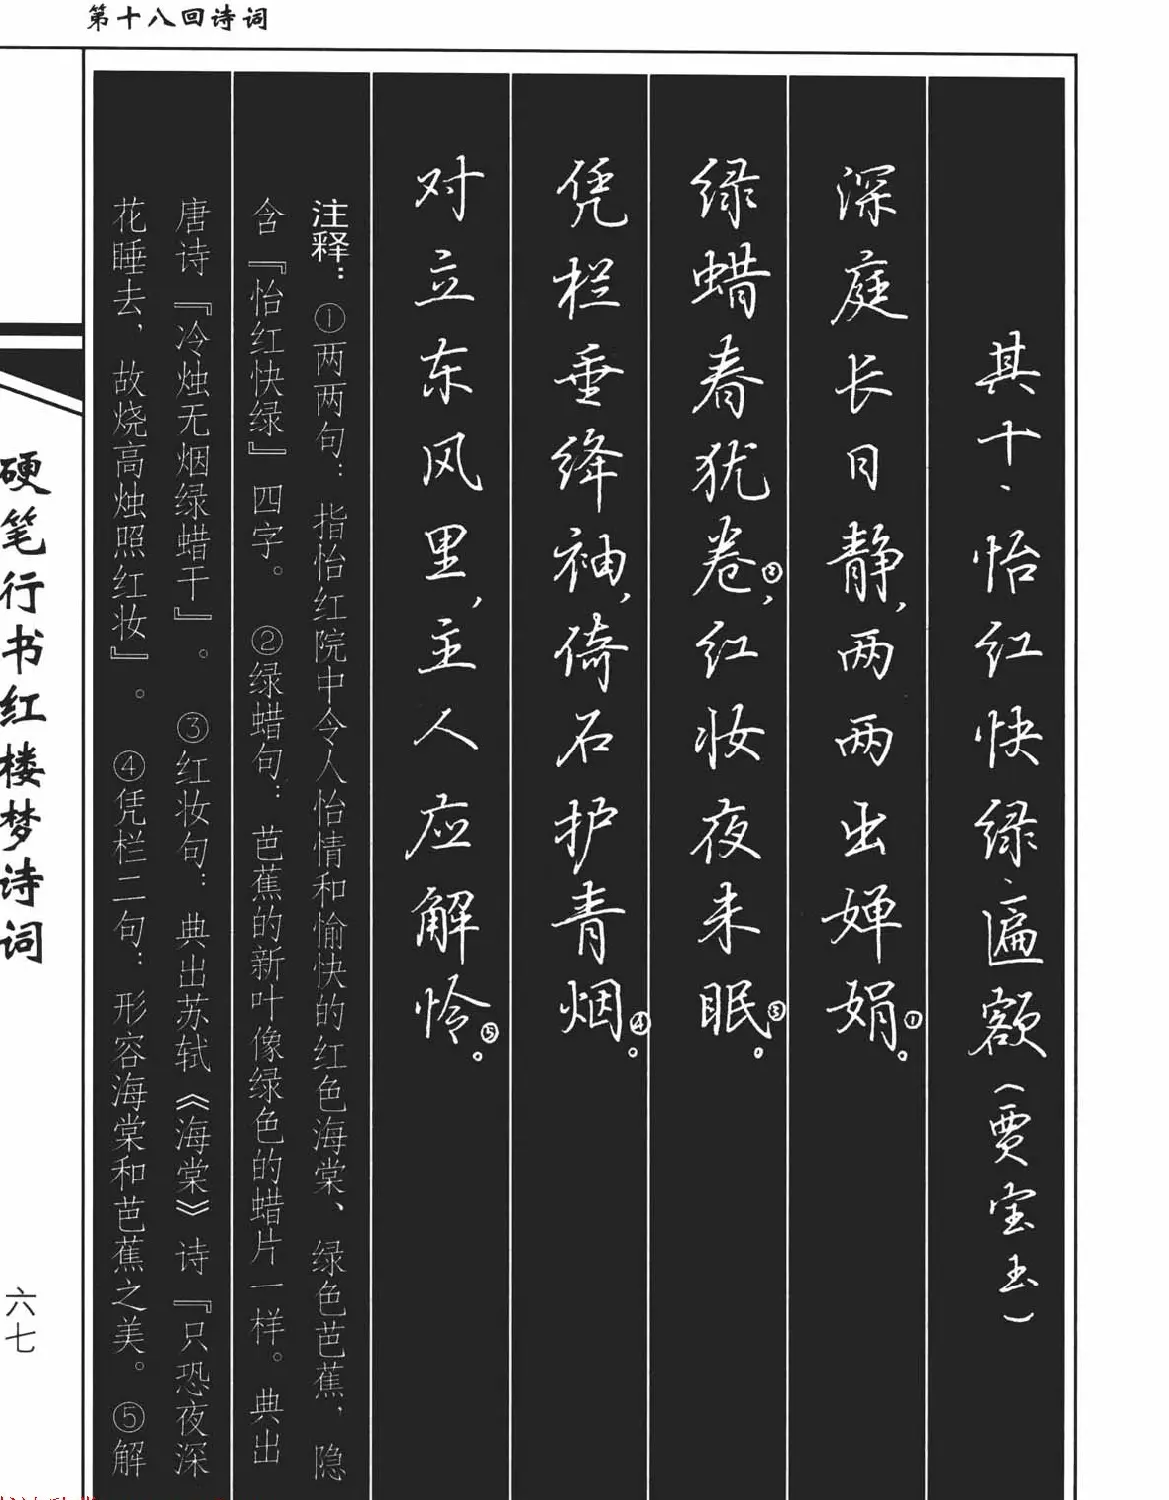 第十八回诗词
其十、怡红快绿·匾额（贾宝玉）
深庭长日静，两两出婵娟①。
绿蜡春犹卷②，红妆夜未眠③。
凭栏垂绛袖，倚石护青烟④。
对立东风里，主人应解怜⑤。
注释：①两两句：指怡红院中令人怡情和愉快的红色海棠、绿色芭蕉，隐
含『怡红快绿』四字。 ②绿蜡句：芭蕉的新叶像绿色的蜡片一样。典出
唐诗『冷烛无烟绿蜡干』。 ③红妆句：典出苏轼《海棠》诗『只恐夜深
花睡去，故烧高烛照红妆』。 ④凭栏二句：形容海棠和芭蕉之美。⑤解
硬笔行书红楼梦诗词
六七